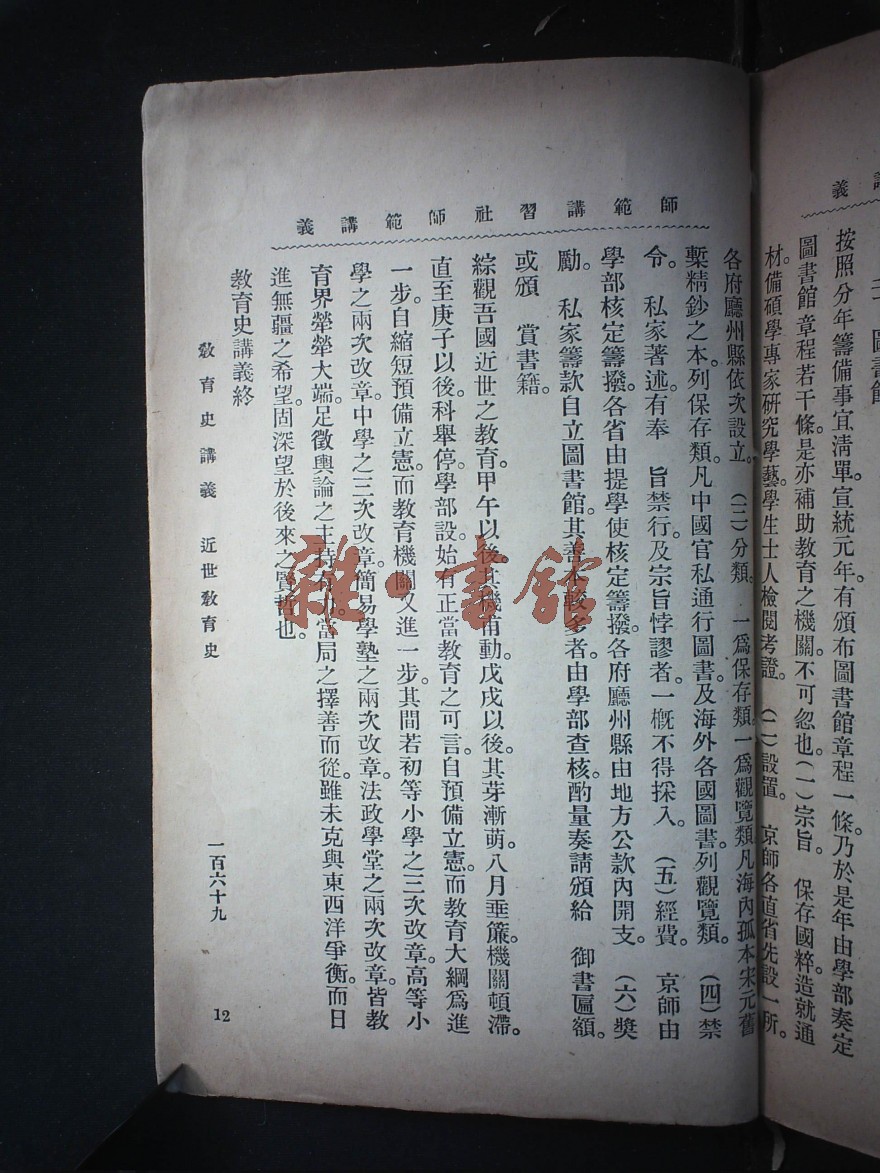 講義
圖書館
按照分年籌備事宜清單。宣統元年。有頒布圖書館章程一條。乃於是年由學部奏定
圖書館章程若干條。是亦補助教育之機關。不可忽也。(一)宗旨。 保存國粹。造就通
材。備碩學專家研究學藝。學生士人檢閱考證。 (二)設置。 京師各直省先設一所。
師範講習社師範講義
各府廳州縣依次設立。 (三)分類。 一爲保存類。一爲觀覽類。凡海內孤本宋元舊
槧精鈔之本。列保存類。凡中國官私通行圖書。及海外各國圖書。列觀覽類。 (四)禁
令。 私家著述。有奉 旨禁行。及宗旨悖謬者。一槪不得採入。 (五)經費。 京師由
學部核定籌撥。各省由提學使核定籌撥。各府廳州縣由地方公款內開支。 (六)獎
勵。 私家籌款自立圖書館。其善本較多者。由學部查核。酌量奏請頒給 御書匾額。
或頒 賞書籍。
綜觀吾國近世之教育。甲午以後。其機甫動。戊戌以後。其芽漸萌。八月垂簾。機關頓滯。
直至庚子以後。科舉停。學部設。始有正當教育之可言。自預備立憲。而教育大綱爲進
一步。自縮短預備立憲。而教育機關又進一步。其間若初等小學之三次改章。高等小
學之兩次改章。中學之三次改章。簡易學塾之兩次改章。法政學堂之兩次改章。皆教
育界犖犖大端。足徵輿論之主持有力。當局之擇善而從。雖未克與東西洋爭衡。而日
進無疆之希望。固深望於後來之賢哲也。
教育史講義終
教育史講義 近世教育史
一百六十九
12
雜·書館